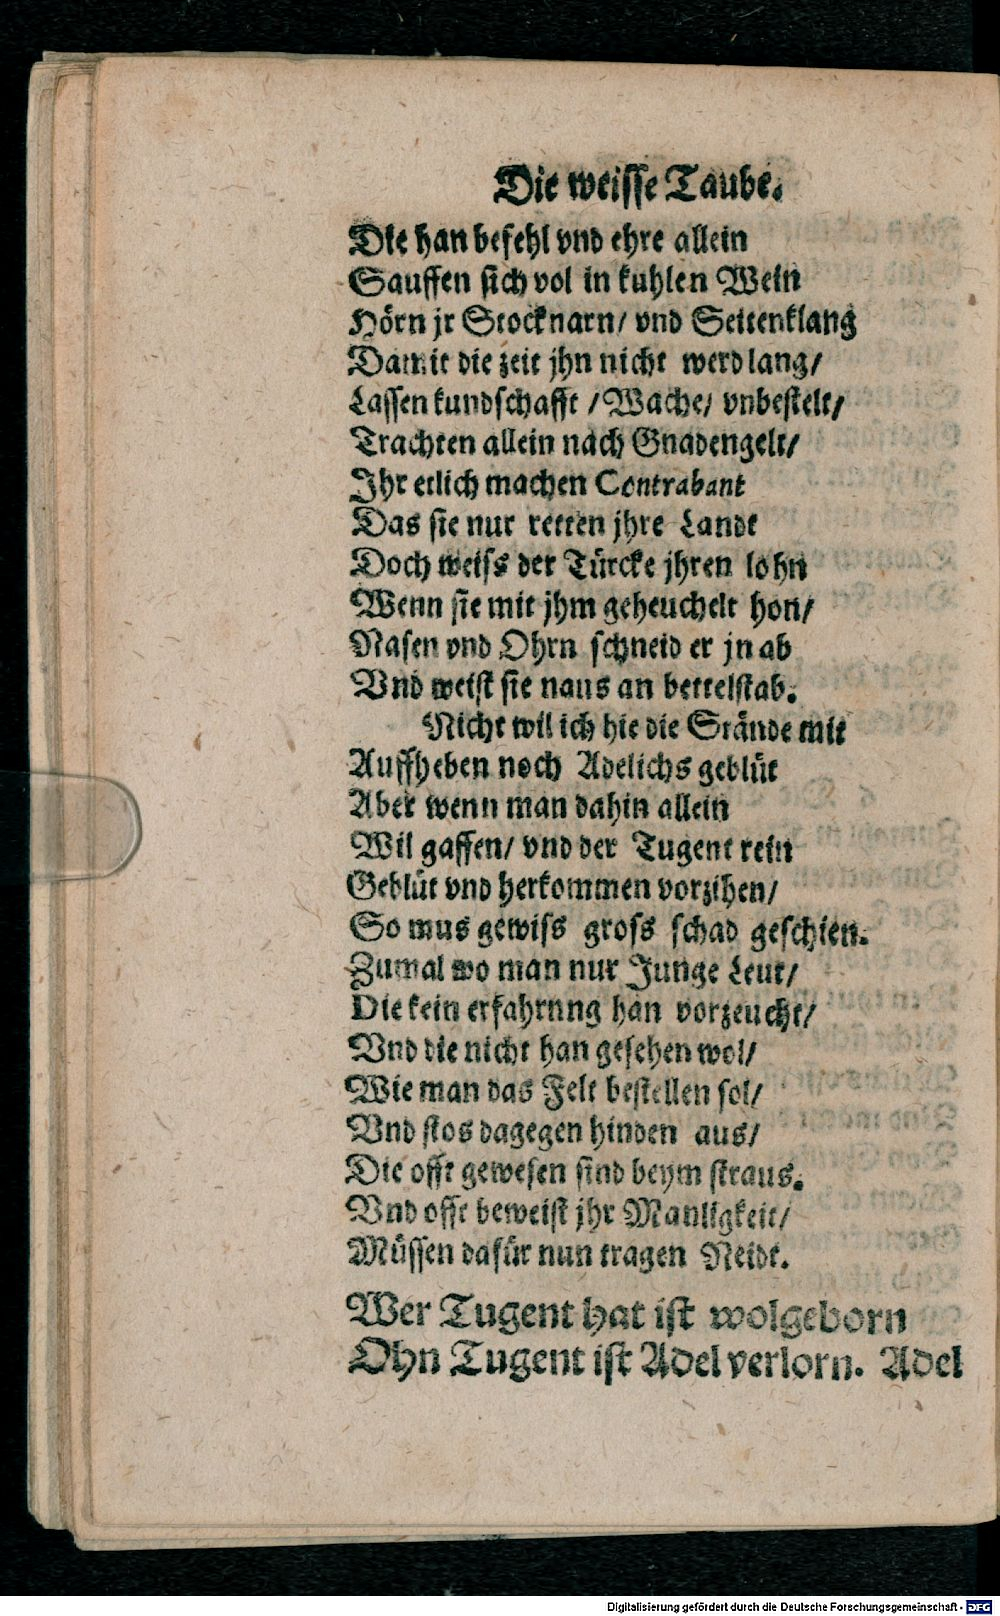 Die weisse Taube.
Die han befehl vnd ehre allein
Sauffen sich vol in kuhlen Wein
Hörn jr Stocknarn/ vnd Seitenklang
Damit die zeit jhn nicht werd lang/
Lassen kundschafft / Wache/ vnbestelt/
Trachten allein nach Gnadengelt/
Ihr etlich machen Contrabant
Das sie nur retten jhre Landt
Doch weiss der Türcke jhren lohn
Wenn sie mit jhm geheuchelt hon/
Nasen vnd Ohrn schneid er jn ab
Vnd weist sie naus an bettelstab.
Nicht wil ich hie die Stände mit
Auffheben noch Adelichs geblüt
Aber wenn man dahin allein
Wil gaffen/ vnd der Tugent rein
Geblüt vnd herkommen vorzihen/
So mus gewiss gross schad geschien.
Zumal wo man nur Junge Leut/
Die kein erfahrnng han vorzeucht/
Vnd die nicht han gesehen wol/
Wie man das Felt bestellen sol/
Vnd stos dagegen hinden aus/
Die offt gewesen sind beym straus.
Vnd offt beweist jhr Manligkeit/
Müssen dafür nun tragen Neidt.
Wer Tugent hat ist wolgeborn
Ohn Tugent ist Adel verlorn. Adel
Digitalisierung gefördert durch die Deutsche Forschungsgemeinschaft - DFG